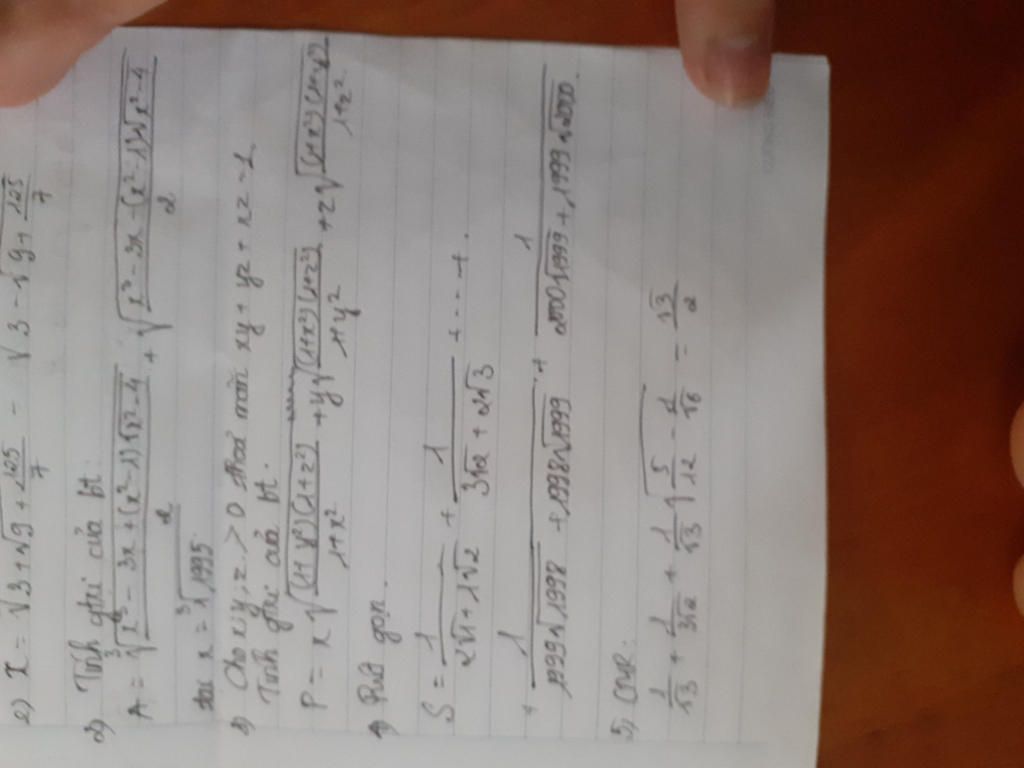 2) x = √(3 + √(9 + 125/7)) - √(3 - √(9 + 125/7))
2) Tính gtri của bt:
A = ∛((x³ - 3x + (x² - 1)√(x² - 4))/2) + √((x³ - 3x - (x² - 1)√(x² - 4))/2)
x = ∛1995
3) Cho x; y; z > 0 thoả mãn xy + yz + xz = 1
Tính gtri của bt.
P = x√((1 + y²)(1 + z²)/(1 + x²)) + y√((1 + x²)(1 + z²)/(1 + y²)) + z√((1 + x²)(1 + y²)/(1 + z²))
4) Rút gọn.
S = 1/(2√1 + 1√2) + 1/(3√2 + 2√3) + ... + .
+ 1/(1999√1998 + 1998√1999) + 1/(2000√1999 + 1999√2000) .
5) CMR:
1/√3 + 1/(3√2) + 1/√3 √(5/12 - 1/√6) = √3/2